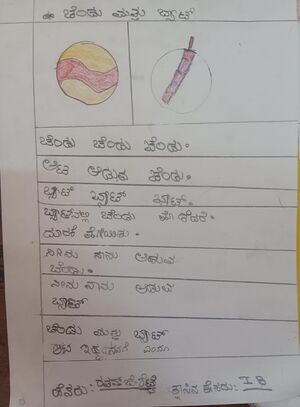 ಚೆಂಡು ಮತ್ತು ಬ್ಯಾಟ್
ಚೆಂಡು ಚೆಂಡು ಚೆಂಡು.
ಆಟ ಆಡುವ ಚೆಂಡು.
ಬ್ಯಾಟ್ ಬ್ಯಾಟ್ ಬ್ಯಾಟ್.
ಬ್ಯಾಟ್‌ನಲ್ಲಿ ಚೆಂಡು ಹೊಡೆದರೆ
ದೂರಕೆ ಹೋಯಿತು.
ನೀನು ನಾನು ಆಡುವ
ಚೆಂಡು.
ನೀನು ನಾನು ಆಡುವ
ಬ್ಯಾಟ್
ಚೆಂಡು ಮತ್ತು ಬ್ಯಾಟ್
ಆಟ
ಹೆಸರು: ಶೆಟ್ಟಿ ಕ್ಲಾಸಿನ ಹೆಸರು: I B